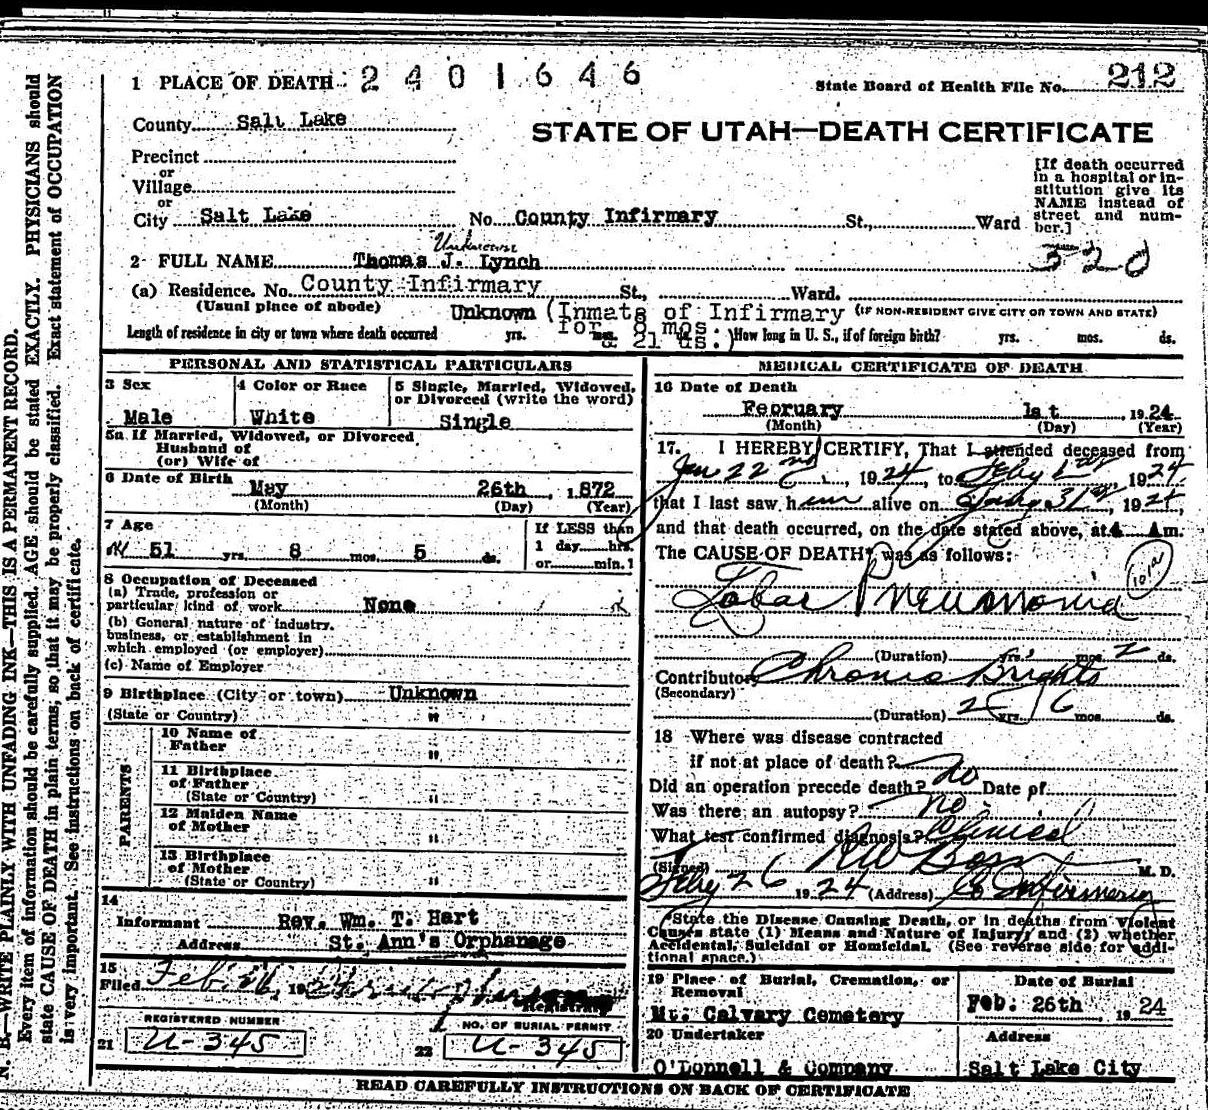 1 PLACE OF DEATH 2401646
State Board of Health File No. 212
County Salt Lake
STATE OF UTAH—DEATH CERTIFICATE
Precinct
or
Village
or
City Salt Lake No. County Infirmary St., Ward
[If death occurred
in a hospital or in-
stitution give its
NAME instead of
street and num-
ber.]
Unknown
2 FULL NAME Thomas J. Lynch
320
(a) Residence. No. County Infirmary St., Ward.
(Usual place of abode) Unknown (Inmate of Infirmary (IF NON-RESIDENT GIVE CITY OR TOWN AND STATE)
for 8 mos.
Length of residence in city or town where death occurred yrs. mos. & 21 ds.) How long in U. S., if of foreign birth? yrs. mos. ds.
PERSONAL AND STATISTICAL PARTICULARS
3 Sex 4 Color or Race 5 Single, Married, Widowed,
or Divorced (write the word)
Male White Single
5a If Married, Widowed, or Divorced
Husband of
(or) Wife of
6 Date of Birth
May 26th, 1872
(Month) (Day) (Year)
7 Age
If LESS than
1 day hrs.
or min.
51 yrs. 8 mos. 5 ds.
8 Occupation of Deceased
(a) Trade, profession or
particular kind of work None
(b) General nature of industry,
business, or establishment in
which employed (or employer)
(c) Name of Employer
9 Birthplace (City or town) Unknown
(State or Country) "
PARENTS
10 Name of
Father "
11 Birthplace
of Father
(State or Country) "
12 Maiden Name
of Mother "
13 Birthplace
of Mother
(State or Country) "
14
Informant Rev. Wm. T. Hart
Address St. Ann's Orphanage
15
Filed Feb. 26, 1924
Registrar
REGISTERED NUMBER
21 U-345
NO. OF BURIAL PERMIT
22 U-345
MEDICAL CERTIFICATE OF DEATH
16 Date of Death
February 1st, 1924
(Month) (Day) (Year)
17. I HEREBY CERTIFY, That I attended deceased from
Jan 22nd, 1924, to Feby 1st, 1924,
that I last saw him alive on 31st, 1924,
and that death occurred, on the date stated above, at 4 Am.
The CAUSE OF DEATH* was as follows:
101a
Lobar Pneumonia
(Duration) yrs. mos. 2 ds.
Contributory Chronic Brights
(Secondary)
(Duration) 2 yrs. 6 mos. ds.
18 Where was disease contracted
if not at place of death?
Did an operation precede death? no Date of
Was there an autopsy? no
What test confirmed diagnosis? Clinical
(Signed) M. D.
Feby 26 1924 (Address) Co Infirmary
*State the Disease Causing Death, or in deaths from Violent
Causes state (1) Means and Nature of Injury; and (2) whether
Accidental, Suicidal or Homicidal. (See reverse side for addi-
tional space.)
19 Place of Burial, Cremation, or
Removal
Mt. Calvary Cemetery
Date of Burial
Feb. 26th, 1924
20 Undertaker
O'Donnell & Company
Address
Salt Lake City
READ CAREFULLY INSTRUCTIONS ON BACK OF CERTIFICATE
N. B.—WRITE PLAINLY WITH UNFADING INK—THIS IS A PERMANENT RECORD.
Every item of information should be carefully supplied. AGE should be stated EXACTLY. PHYSICIANS should
state CAUSE OF DEATH in plain terms, so that it may be properly classified. Exact statement of OCCUPATION
is very important. See instructions on back of certificate.